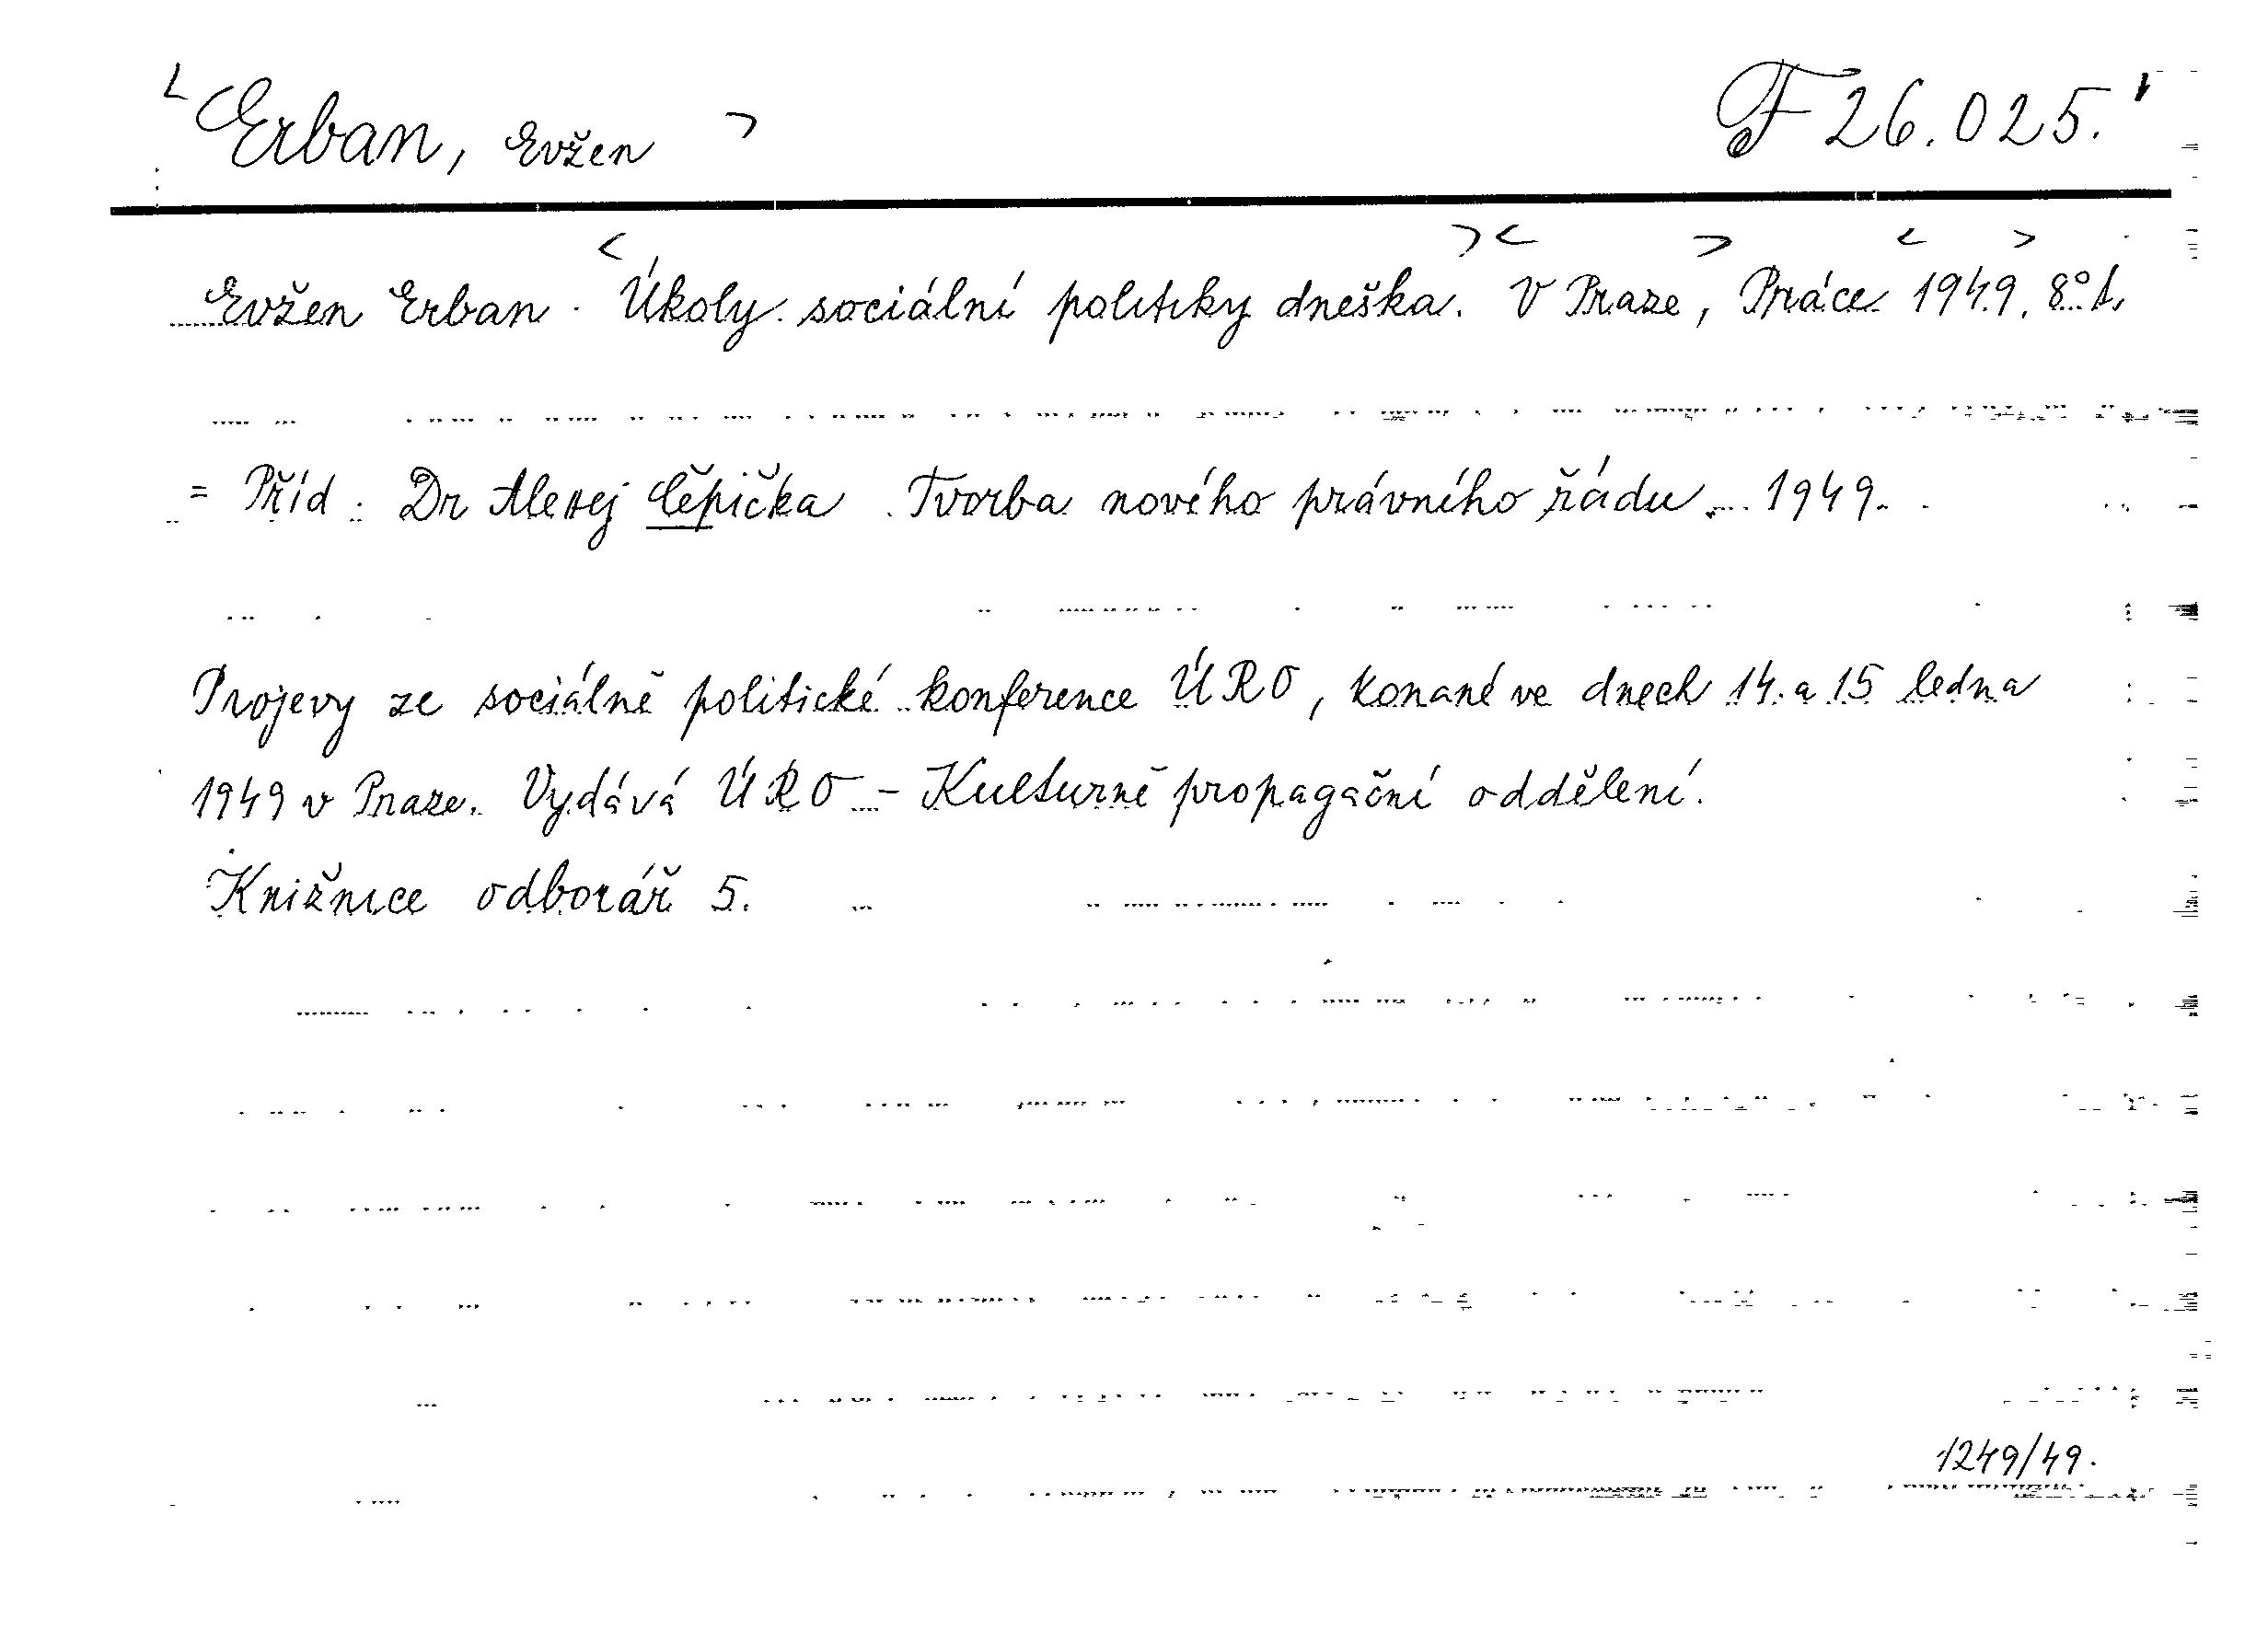 Erban, Evžen F 26.025.
Evžen Erban. Úkoly sociální politiky dneška. V Praze, Práce 1949. 8°.
= Příd. Dr Alexej Čěpička. Tvorba nového právního řádu. 1949.
Projevy ze sociálně politické konference ÚRO, konané ve dnech 14. a 15 ledna
1949 v Praze. Vydává ÚRO - Kulturně propagační oddělení.
Knižnice odborář 5.
1249/49.